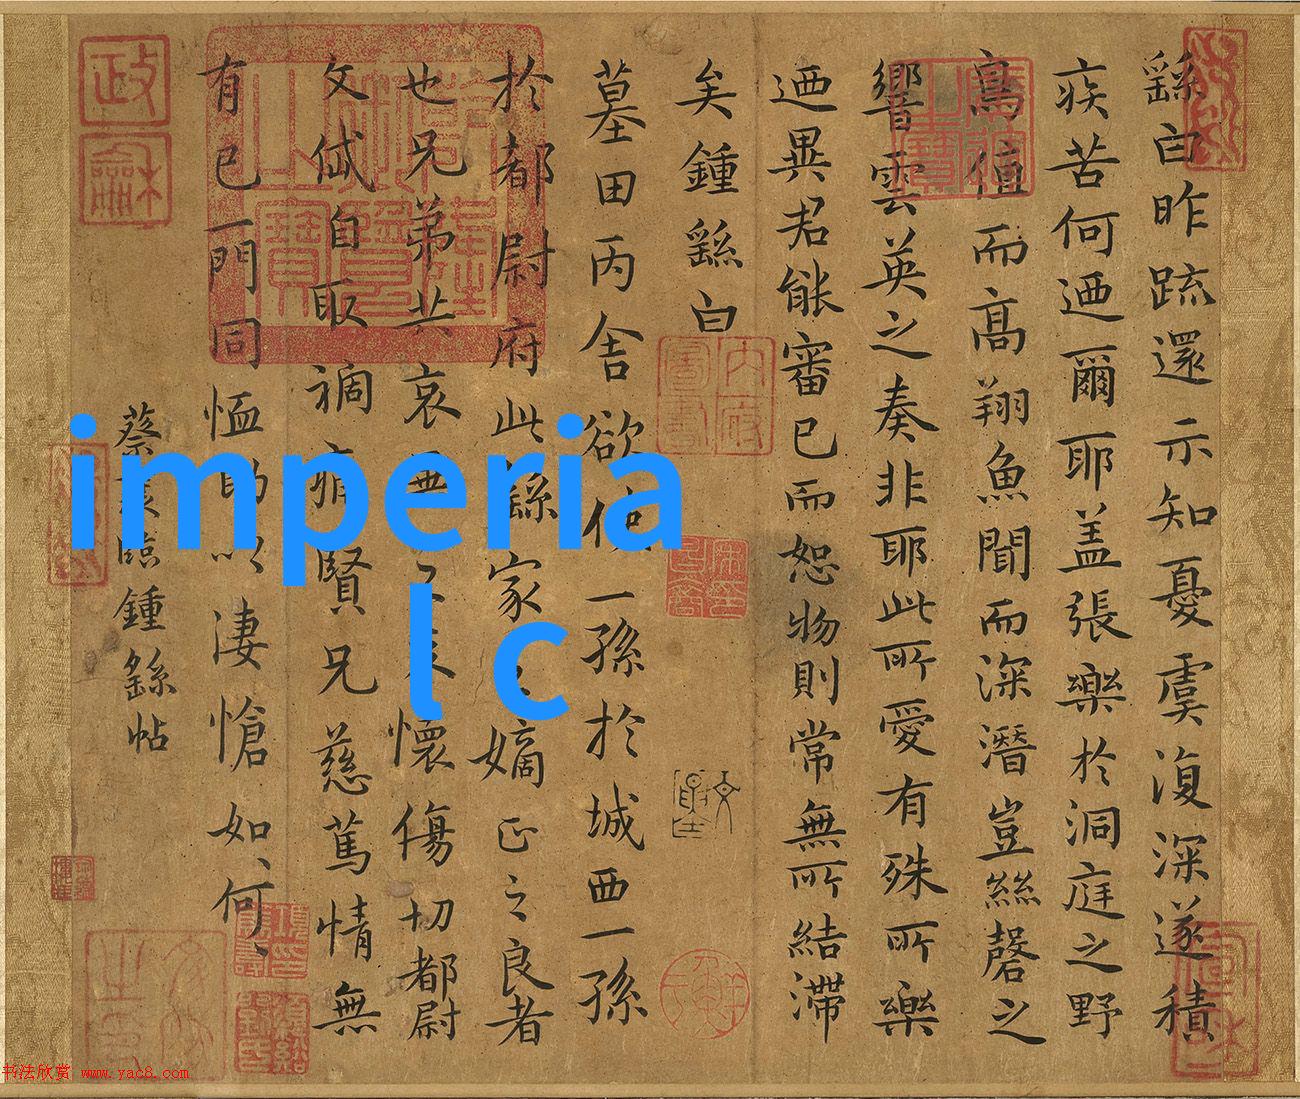 繇白昨疏還示知憂虞復深遂積
疾苦何迺爾耶盖張樂於洞庭之野
鳥值而高翔魚聞而深潛豈絲磬之
響雲英之奏非耶此所愛有殊所樂
迺異君能審已而恕物則常無所結滯
矣鍾繇白
墓田丙舍欲使一孫於城西一孫
於都尉府此繇家之嫡正之良者
也兄弟共哀懷傷切都尉
文岱自取禍痛賢兄慈篤情無
有已一門同恤助以淒愴如、何、
蔡襄臨鍾繇帖
imperia
l c
书法欣赏 www.yac8.com